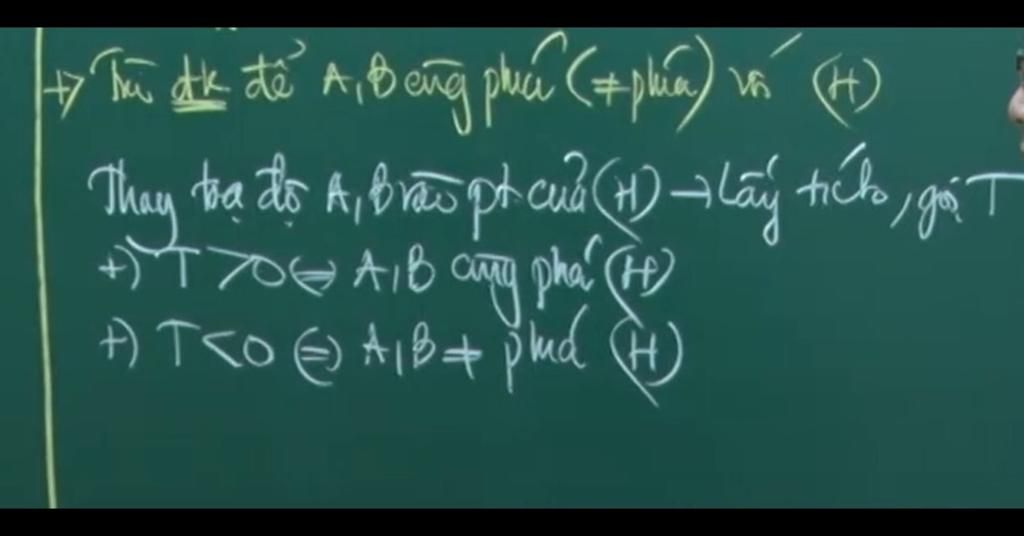 +) Tìm đk để A, B cùng phía (≠ phía) với (H)
Thay tọa độ A, B vào pt của (H) → Lấy tích, gọi T
+) T > 0 ⇔ A, B cùng phía (H)
+) T < 0 ⇔ A, B ≠ phía (H)